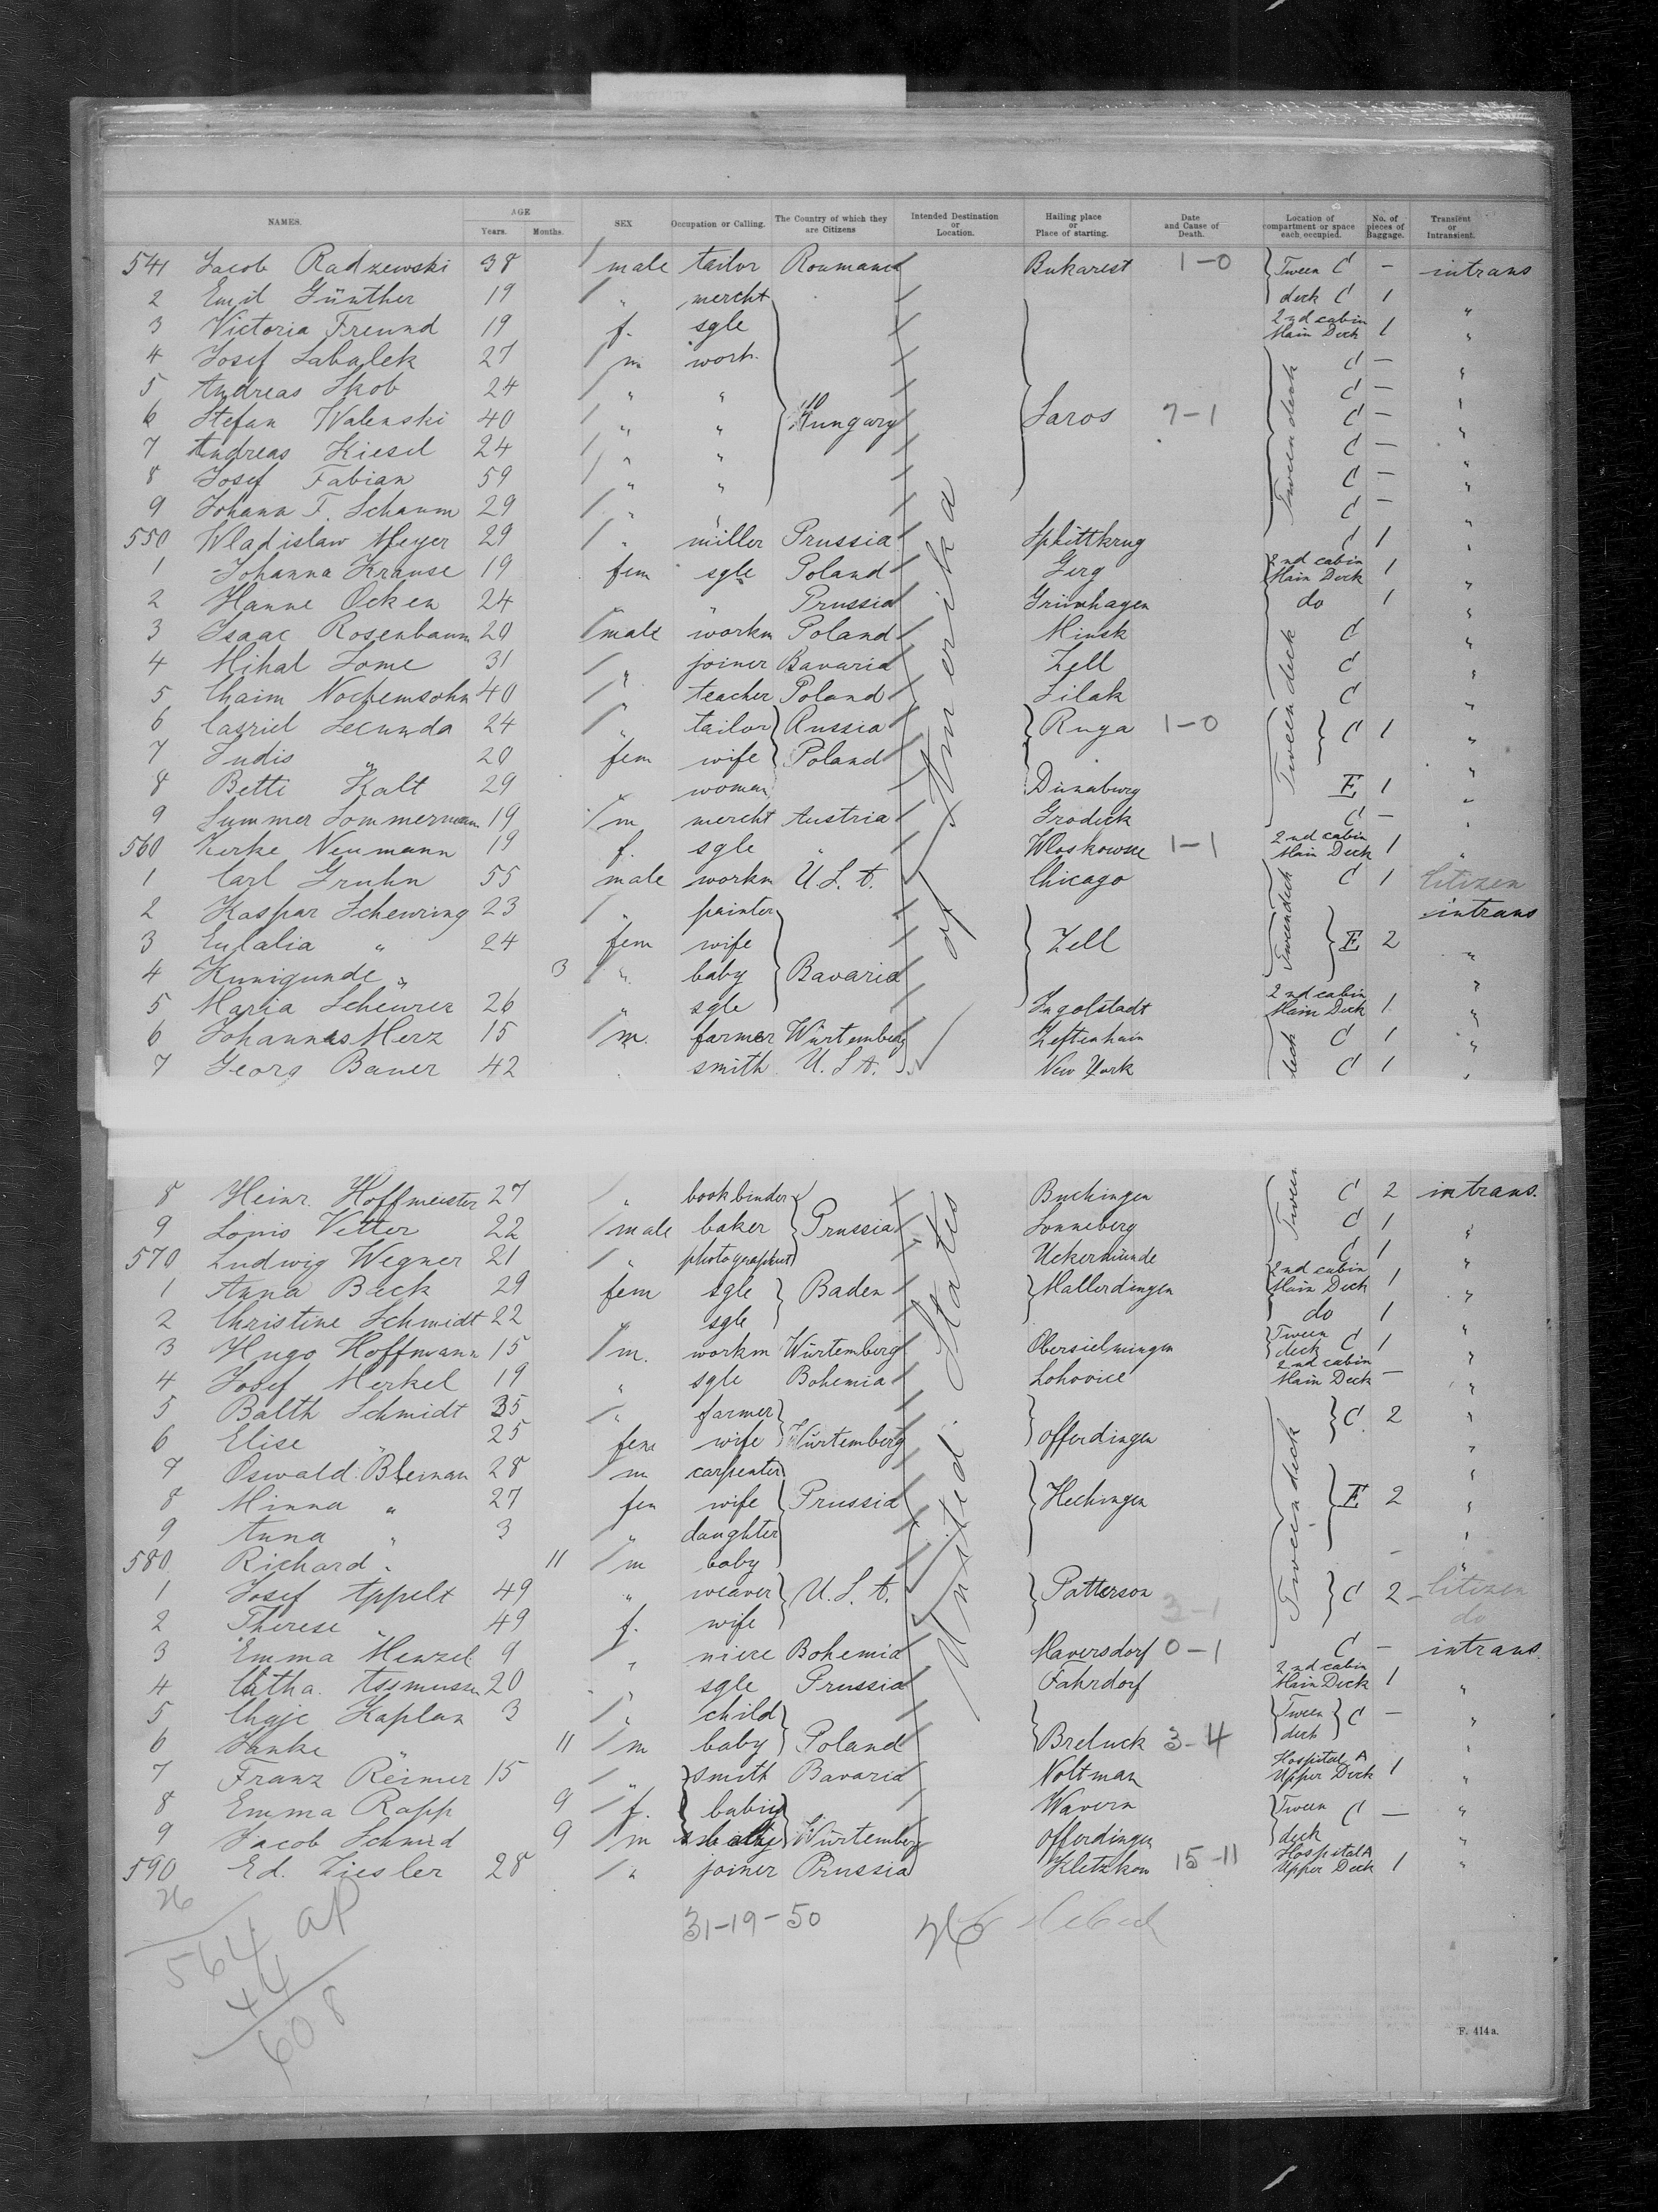 NAMES. AGE Years. Months. SEX Occupation or Calling. The Country of which they are Citizens Intended Destination or Location. Hailing place or Place of starting. Date and Cause of Death. Location of compartment or space each occupied. No. of pieces of Baggage. Transient or Intransient.
541 Jacob Radzewski 38 male tailor Roumania Bukarest 1-0 Tween C — intrans
2 Emil Günther 19 " mercht deck C 1 "
3 Victoria Freund 19 f. sgle 2nd cabin Main Deck 1 "
4 Josef Sabalek 27 m work. C — "
5 Andreas Skob 24 " " C — "
6 Stefan Walenski 40 " " Hungary Saros 7-1 Tween deck C — "
7 Andreas Kiesel 24 " " C — "
8 Josef Fabian 59 " " C — "
9 Johann F. Schaum 29 " " C — "
550 Wladislaw Meyer 29 " miller Prussia Splittkrug C 1 "
1 Johanna Krause 19 fem sgle Poland Gerg 2nd cabin Main Deck 1 "
2 Hanne Ocken 24 " " Prussia Grünhagen do 1 "
3 Isaac Rosenbaum 20 male workm Poland Minsk C "
4 Mihal Tome 31 " joiner Bavaria Zell C "
5 Chaim Nochemsohn 40 " teacher Poland Silak C "
6 Casriel Secunda 24 " tailor Russia Ruga 1-0 Tween deck C 1 "
7 Judis " 20 fem wife Poland "
8 Betti Kalt 29 " woman Dünaburg E 1 "
9 Summer Sommermann 19 m mercht Austria Grodeck C — "
560 Zerke Neumann 19 f. sgle " Wloskowsze 1-1 2nd cabin Main Deck 1 "
1 Carl Gruhn 55 male workm U.S.A. Chicago C 1 Citizen
2 Kaspar Schewring 23 " painter intrans
3 Eulalia " 24 fem wife Zell Tweendeck E 2 "
4 Kunigunde " 3 " baby Bavaria "
5 Maria Scheurer 26 " sgle Ingolstadt 2nd cabin Main Deck 1 "
6 Johannes Merz 15 m. farmer Würtemberg Zeftenhain C 1 "
7 Georg Bauer 42 " smith U.S.A. New York deck C 1 "
of Amerika
8 Heinr. Hoffmeister 27 " bookbinder Buchingen Tween C 2 intrans.
9 Louis Vetter 22 male baker Prussia Sonneberg C 1 "
570 Ludwig Wegner 21 " photographist Uckermünde C 1 "
1 Anna Back 29 fem sgle Baden Mallerdingen 2nd cabin Main Deck 1 "
2 Christine Schmidt 22 sgle do 1 "
3 Hugo Hoffmann 15 m. workm Würtemberg Obersielmingen Tween deck C 1 "
4 Josef Merkel 19 " sgle Bohemia Lohovice 2nd cabin Main Deck — "
5 Balth Schmidt 35 " farmer C 2 "
6 Elise " 25 fem wife Würtemberg Offerdingen "
7 Oswald Bleman 28 m carpenter "
8 Minna " 27 fem wife Prussia Hechingen Tween deck E 2 "
9 Anna " 3 " daughter "
580 Richard " 11 m baby — "
1 Josef Appelt 49 " weaver U.S.A. Patterson C 2 Citizen
2 Therese " 49 f. wife 3-1 do
3 Emma Menzel 9 " niece Bohemia Maversdorf 0-1 C — intrans.
4 Cath a. Assmussen 20 " sgle Prussia Fahrdorf 2nd cabin Main Deck 1 "
5 Chaje Kaplan 3 " child Tween C — "
6 Janke " 11 m baby Poland Breluck 3-4 deck "
7 Franz Reimer 15 " smith Bavaria Voltman Hospital A Upper Deck 1 "
8 Emma Rapp 9 f. baby Wavern Tween C — "
9 Jacob Schmid 9 m baby Würtemberg Offerdingen deck "
590 Ed. Ziesler 28 " joiner Prussia Kletzkow 15-11 Hospital A Upper Deck 1 "
United States
26 31-19-50
564 aP
44
608
F. 414a.